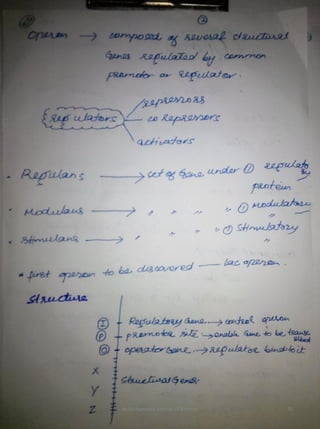 Operon → composed of several structural
Genes regulated by common
promotor or regulator.
regulators
repressors
co repressors
activators
• Regulans → set of Gene under ① regulatory
protein
• Modulans → " " " " ① Modulatory
"
• Stimulans → " " " " ① Stimulatory
"
* first operon to be discovered — lac operon.
Structure
I Regulatory Gene → control operon
P promotor site → enable Gene to be
O operator Gene → regulator bind to it
X
Y structural Genes
Z